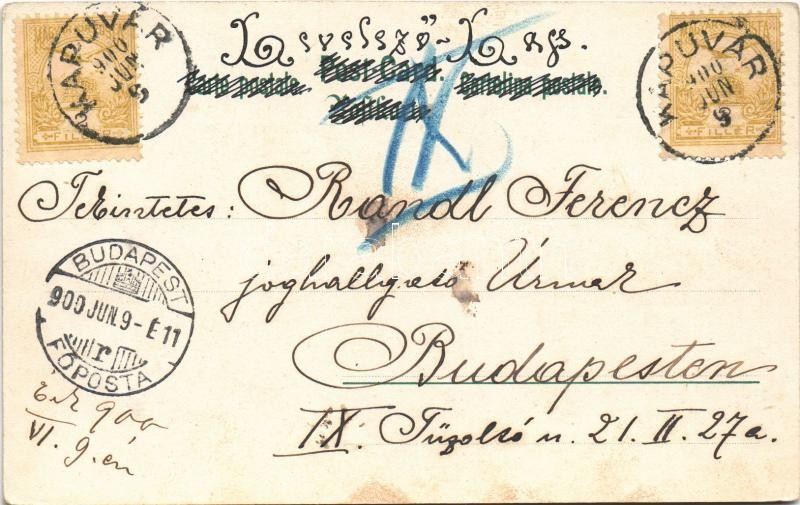 Levelező-Lap.
Carte postale. Post Card. Cartolina postale.
KAPUVÁR
900
JUN
8
FILLÉR
KAPUVÁR
900
JUN
8
FILLÉR
IX
Tekintetes: Randl Ferencz
joghallgató Úrnak
Budapesten
IX. Tűzoltó u. 21. II. 27a.
BUDAPEST
900 JUN 9 - É 11
r
FŐPOSTA
900
VI. 9.én